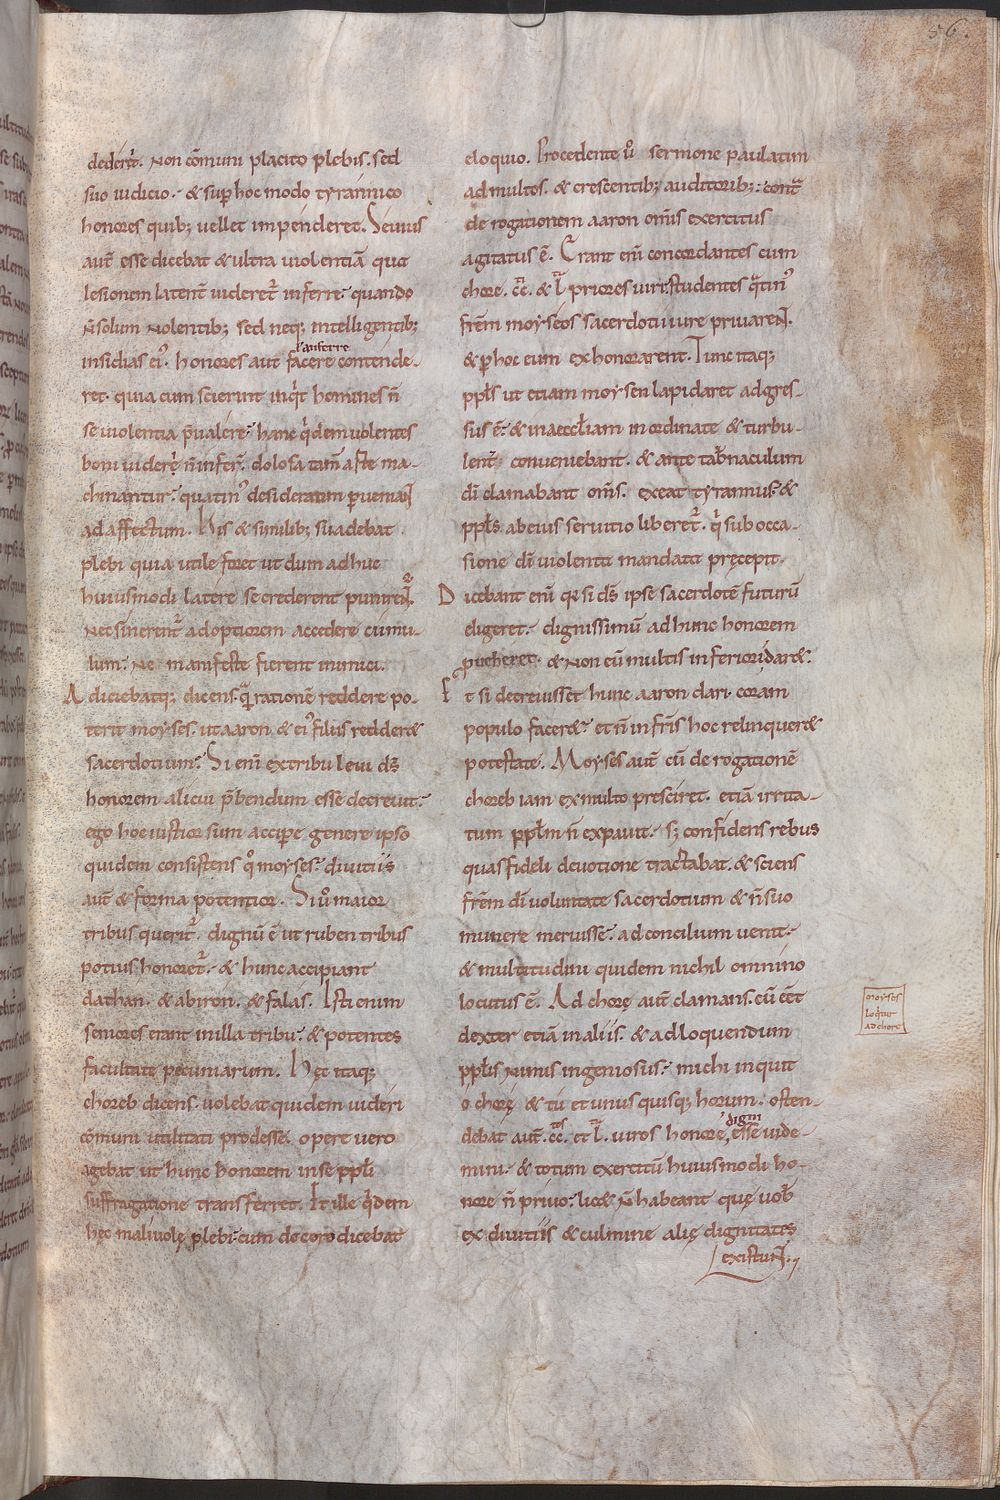 56.
dederet̄. Non cōmuni placito plebis. sed
suo iudicio. & sup hoc modo tyrannico
honores quib; uellet impenderet. Seuius
aut̄ esse dicebat & ultra uiolentiā que
lesionem latent̄ uideret̄ inferre. quando
n̄ solum nolentib; sed neq; intelligentib;
ł auferre
insidias ei᾽. honores aut̄ facere contende-
ret. quia cum scierint inqͥt homines n̄
se uiolentia p̄ualere. hanc qͥdem uolentes
boni uiderē n̄ inferr̄. dolosa tam̄ aste ma-
chinantur. quatin᾽ desideratum perueniaN̄
ad affectum. His & similib; suadebat
plebi quia utile foret ut dum adhuc
huiusmodi latere se crederent punireN̄.
Nec sinerent̄ ad optiorem accedere cumu-
lum. Ne manifeste fierent inimici.
Adiciebatq; dicens. qͣ rationē reddere po-
terit moyses. ut aaron & ei᾽ filiis reddere&
sacerdotium. Si enī ex tribu leui dſ̄
honorem alicui p̄bendum esse decreuit.
ego hoc iustior sum accipe genere ipso
quidem consistens qͦ moyses. diuitiis
aut̄ & forma potentior. Si ūo maior
tribus querit̄. dignū ē ut ruben tribus
potius honoret̄. & hunc accipiant
dathan. & abiron. & falas. Isti enim
seniores erant in illa tribu. & potentes
facultate pecuniarum. Hęc itaq;
choreb dicens. uolebat quidem uideri
cōmuni utilitati prodesse. opere uero
agebat ut hunc honorem in se ppłi
suffragatione transferret. Et ille qͥdem
hęc maliuolę plebi. cum decoro dicebat
eloquio. Procedente ū sermone paulatim
ad multos. & crescentib; auditorib;. contͣ
de rogationem aaron om̄is exercitus
agitatus ē. Erant enī concordantes cum
chore. cc. & l. priores uiri. studentes qͣtin᾽
fr̄em moyseos sacerdotii iure priuareN̄.
& p hoc eum exhonorarent. Tunc itaq;
ppłs ut etiam moysen lapidaret adgres-
sus ē. & in aecctiam inordinate & turbu-
lent̄ conueniebant. & ante tab̄naculum
dī clamabant om̄s. exeat tyrannus. &
ppłs ab eius seruitio liberet̄. qͥ sub occa-
sione dī uiolenta mandata pręcepit.
Dicebant enī qr si dſ̄ ipse sacerdotē futurū
eligeret. dignissimū ad hunc honorem
proueheret. & non eū multis inferiori dare&.
Et si decreuisset hunc aaron dari. coram
populo facere&. et n̄ in fr̄is hoc relinquere&
potestate. Moyses aut̄ cū de rogationē
choreb iam ex multo presciret. etiā irrita-
tum ppłm n̄ expauit. s; confidens rebus
quas fideli deuotione tractabat. & sciens
fr̄em dī uoluntate sacerdotium & n̄ suo
munere meruisse. ad concilium uenit.
& multitudini quidem nichil omnino
locutus ē. Ad chorę aut̄ clamans. cū eēt
dexter etiā in aliis. & ad loquendum
ppłis nimis ingeniosus. michi inquit
o chorę & tu et unus quisq; horum. osten-
digni
debat aut̄ .cc. et l. uiros honore, esse uide-
mini. & totum exercitū huiusmodi ho-
nore n̄ priuo. lic& n̄ habeant quę uob̄
ex diuitiis & culmine alię dignitates
existuN̄.
moyses
loqͥtur
ad chore